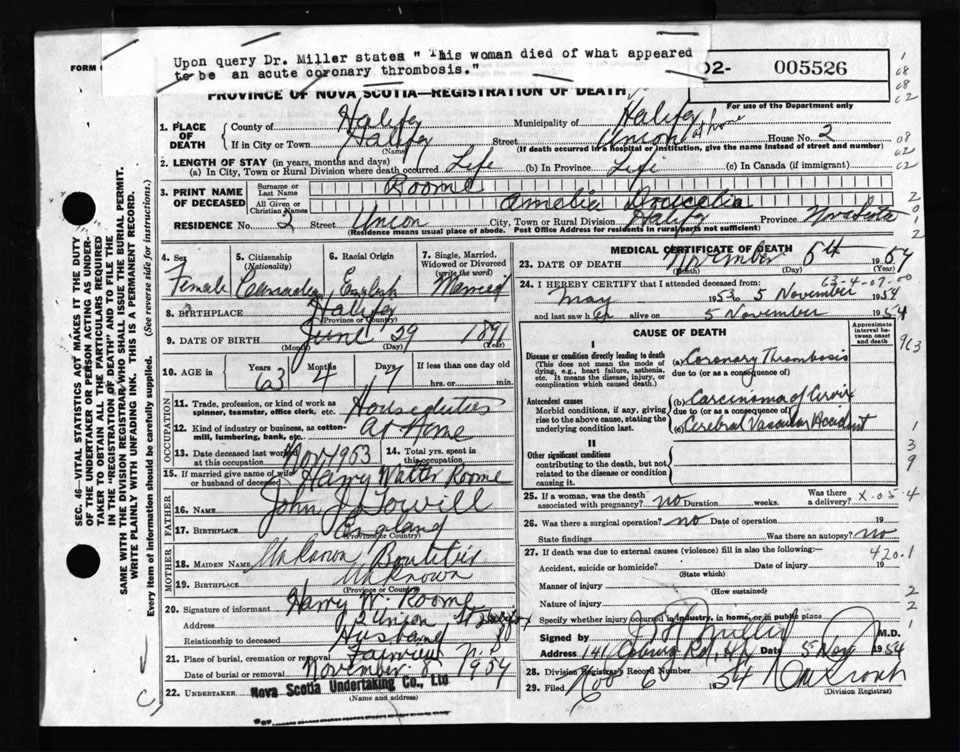 Upon query Dr. Miller states " This woman died of what appeared
to be an acute coronary thrombosis."
FORM
02- 005526
PROVINCE OF NOVA SCOTIA—REGISTRATION OF DEATH
For use of the Department only
1. PLACE OF DEATH
County of Halifax Municipality of Halifax
If in City or Town Halifax Street Union at home House No. 2
(Name) (If death occurred in a hospital or institution, give the name instead of street and number)
2. LENGTH OF STAY (in years, months and days)
(a) In City, Town or Rural Division where death occurred Life (b) In Province Life (c) In Canada (if immigrant)
3. PRINT NAME OF DECEASED
Surname or Last Name Roome
All Given or Christian Names Amelia
RESIDENCE No. 2 Street Union City, Town or Rural Division Halifax Province Nova Scotia
(Residence means usual place of abode. Post Office Address for residents in rural parts not sufficient)
4. Sex Female
5. Citizenship (Nationality) Canadian
6. Racial Origin English
7. Single, Married, Widowed or Divorced (write the word) Married
8. BIRTHPLACE Halifax
(Province or Country)
9. DATE OF BIRTH June 29 1891
(Month) (Day) (Year)
10. AGE in Years 63 Months 4 Days 7 If less than one day old hrs. or min.
OCCUPATION
11. Trade, profession, or kind of work as spinner, teamster, office clerk, etc. Houseduties
12. Kind of industry or business, as cotton-mill, lumbering, bank, etc. At Home
13. Date deceased last worked at this occupation Nov 1953
14. Total yrs. spent in this occupation
15. If married give name of wife or husband of deceased Harry Walter Roome
FATHER
16. Name John J.
17. Birthplace England
(Province or Country)
MOTHER
18. MAIDEN NAME Unknown Boutilier
19. BIRTHPLACE Unknown
(Province or Country)
20. Signature of informant Harry W. Roome
Address 2 Union St Halifax
Relationship to deceased Husband
21. Place of burial, cremation or removal Fairview
Date of burial or removal November 8 1954
22. UNDERTAKER Nova Scotia Undertaking Co., Ltd
(Name and address)
MEDICAL CERTIFICATE OF DEATH
23. DATE OF DEATH November 5th 1954
(Month) (Day) (Year)
63-4-07-00
24. I HEREBY CERTIFY that I attended deceased from:
May 1953 to 5 November 1954
and last saw her alive on 5 November 1954
CAUSE OF DEATH
Approximate interval between onset and death
I
Disease or condition directly leading to death
(This does not mean the mode of dying, e.g., heart failure, asthenia, etc. It means the disease, injury, or complication which caused death.)
(a) Coronary Thrombosis
due to (or as a consequence of)
Antecedent causes
Morbid conditions, if any, giving rise to the above cause, stating the underlying condition last.
(b) Carcinoma of Cervix
due to (or as a consequence of)
(c) Cerebral Vascular Accident
II
Other significant conditions
contributing to the death, but not related to the disease or condition causing it.
25. If a woman, was the death associated with pregnancy? no Duration weeks. Was there a delivery? X-05-4
26. Was there a surgical operation? no Date of operation 19
State findings Was there an autopsy? no
27. If death was due to external causes (violence) fill in also the following:— 420.1
Accident, suicide or homicide? Date of injury 19
(State which)
Manner of injury
(How sustained)
Nature of injury
Specify whether injury occurred in industry, in home, or in public place
Signed by Miller M.D.
Address 141 Coburg Rd., Hfx Date 5 Nov 1954
28. Division Registrar's Record Number
29. Filed Nov 6 1954
(Division Registrar)
SEC. 46—VITAL STATISTICS ACT MAKES IT THE DUTY
OF THE UNDERTAKER OR PERSON ACTING AS UNDER-
TAKER TO OBTAIN ALL THE PARTICULARS REQUIRED
IN THE "REGISTRATION OF DEATH" AND TO FILE THE
SAME WITH THE DIVISION REGISTRAR WHO SHALL ISSUE THE BURIAL PERMIT.
WRITE PLAINLY WITH UNFADING INK. THIS IS A PERMANENT RECORD.
Every item of information should be carefully supplied. (See reverse side for instructions.)